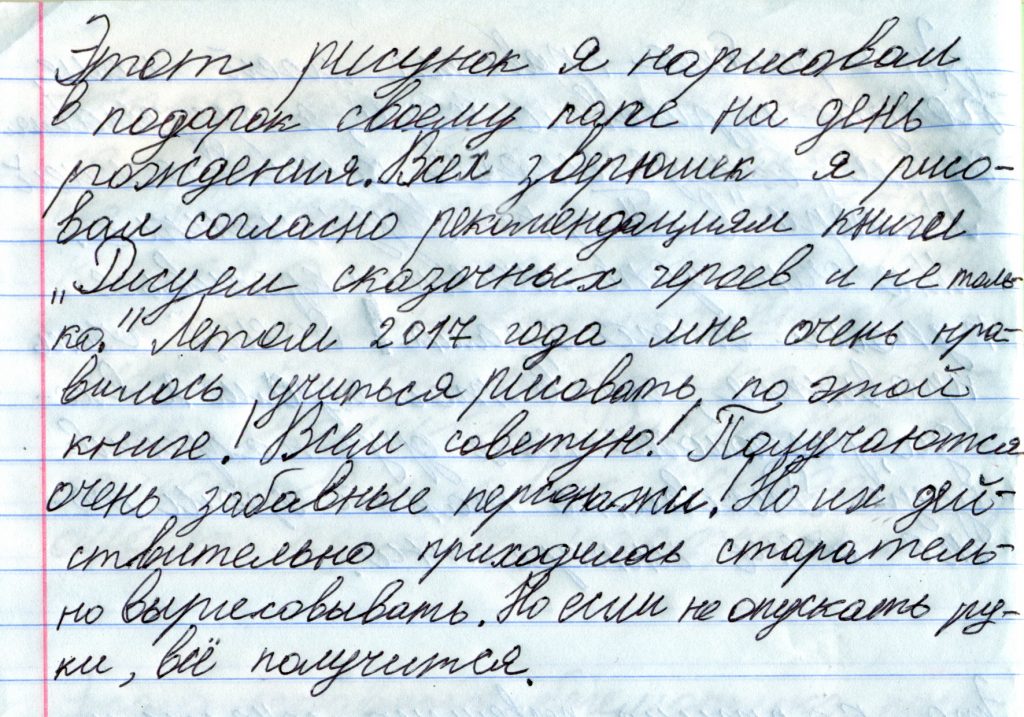 Этот рисунок я нарисовал
в подарок своему папе на день
рождения. Всех зверюшек я рисо-
вал согласно рекомендациям книги
„Рисуем сказочных героев и не толь-
ко." Летом 2017 года мне очень нра-
вилось учиться рисовать по этой
книге! Всем советую! Получаются
очень забавные персонажи! Но их дей-
ствительно приходилось старатель-
но вырисовывать. Но если не опускать ру-
ки, всё получится.